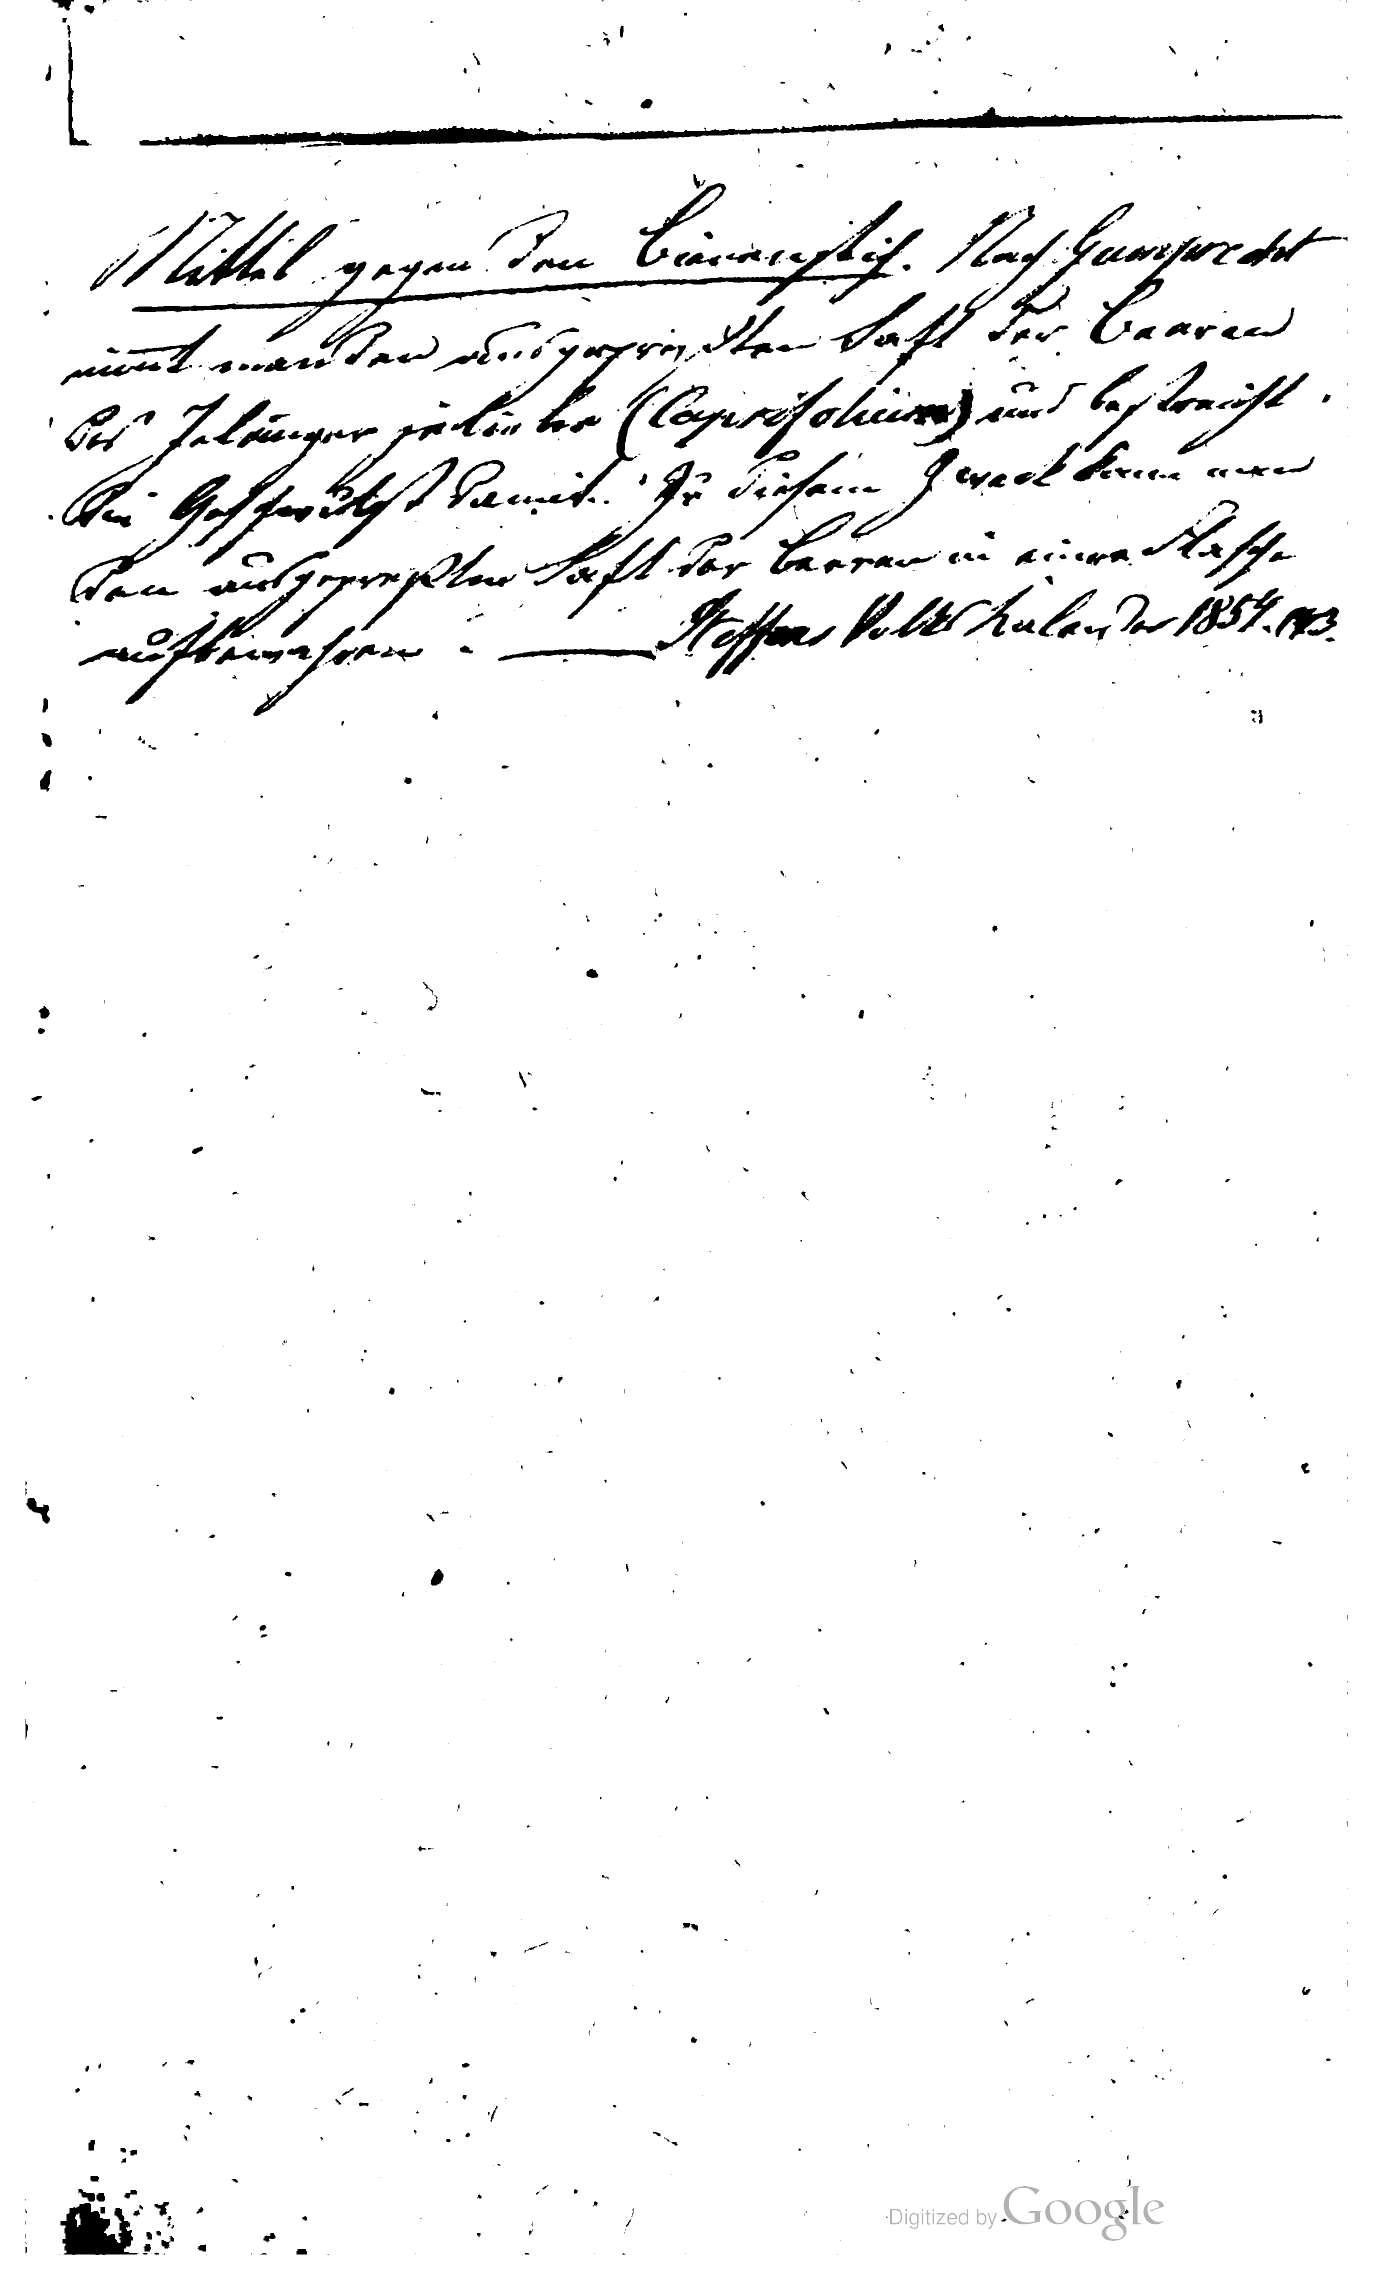 Mittel gegen den Bienenstich. Nach Gumprecht
nim̅t man den ausgepreßten Saft der Beeren
des Jelänger jelieber (Caprifolium) und bestreicht
die Geschwulst damit. Zu diesem Zweck kann man
den ausgepreßten Saft der Beeren in einer Flasche
aufbewahren. — Steffens Volks Kalender 1854.
Digitized by Google